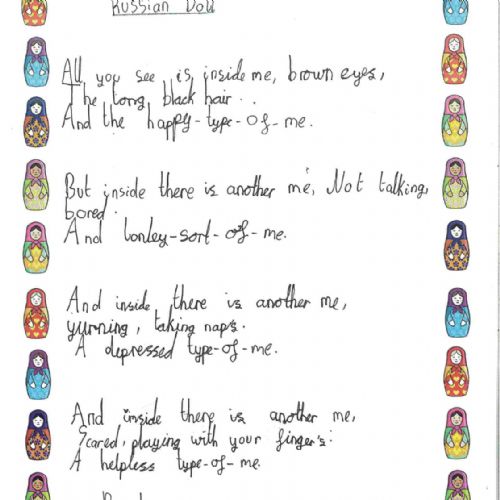 Russian Doll
All you see is inside me, brown eyes,
The long black hair . .
And the happy-type-of-me.
But inside there is another me, Not talking,
bored.
And lonley-sort-of-me.
And inside there is another me,
yurning, taking naps.
A depressed type-of-me.
And inside there is another me,
Scared, playing with your finger's.
A helpless type-of-me.